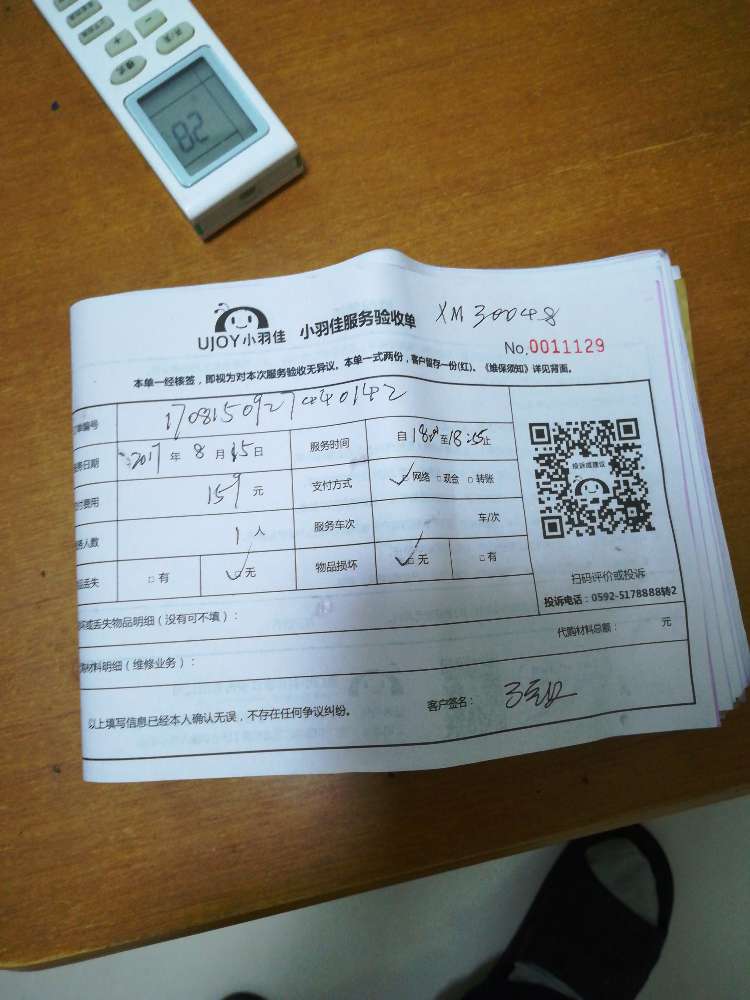 UJOY小羽佳 小羽佳服务验收单 XM30048
No.0011129
本单一经核签，即视为对本次服务验收无异议。本单一式两份，客户留存一份(红)。《维保须知》详见背面。
编号
日期 2017 年 8 月 15 日 服务时间 自 至 18:55 止
费用 159 元 支付方式 ✓□ 网络 □ 现金 □ 转账
人数 1 人 服务车次 车/次
丢失 □ 有 ✓□ 无 物品损坏 ✓□ 无 □ 有
投诉或建议
扫码评价或投诉
投诉电话：0592-5178888转2
或丢失物品明细（没有可不填）：
材料明细（维修业务）： 代购材料总额： 元
以上填写信息已经本人确认无误，不存在任何争议纠纷。 客户签名：